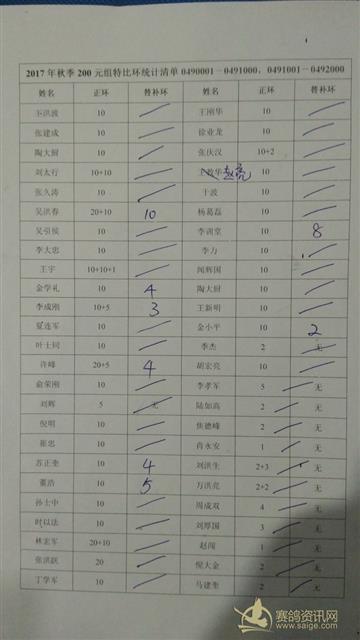 2017年秋季200元组特比环统计清单0490001-0491000，0491001-0492000
姓名 正环 替补环 姓名 正环 替补环
王洪波 10 王刚华 10
张建成 10 徐业龙 10
陶大厨 10 张庆汉 10+2
刘太行 10+10 赵亮 10
张久涛 10 于波 10
吴洪春 20+10 10 杨葛磊 10
吴引侯 10 李训堂 10 8
李大忠 10 李力 10
王宇 10+10+1 闻辉国 10
金学礼 10 4 陶大厨 10
李成刚 10+5 3 王新明 10
夏连军 10 金小平 10 2
叶士同 10 李杰 2 无
许峰 20+5 4 胡宏亮 10
俞荣刚 10 李孝军 5 无
刘辉 5 无 陆如高 2 无
倪明 10 焦德峰 2 无
张忠 10 肖永安 1 无
苏正奎 10 4 刘洪生 2+3 无
董浩 10 5 万洪亮 2+2 无
孙士中 10 周成双 4 无
时以法 10 刘厚国 3 无
林宏军 20+10 赵闯 1 无
张洪跃 20 倪大金 2 无
丁学军 10 马建奎 2 无
赛鸽资讯网
www.saige.com